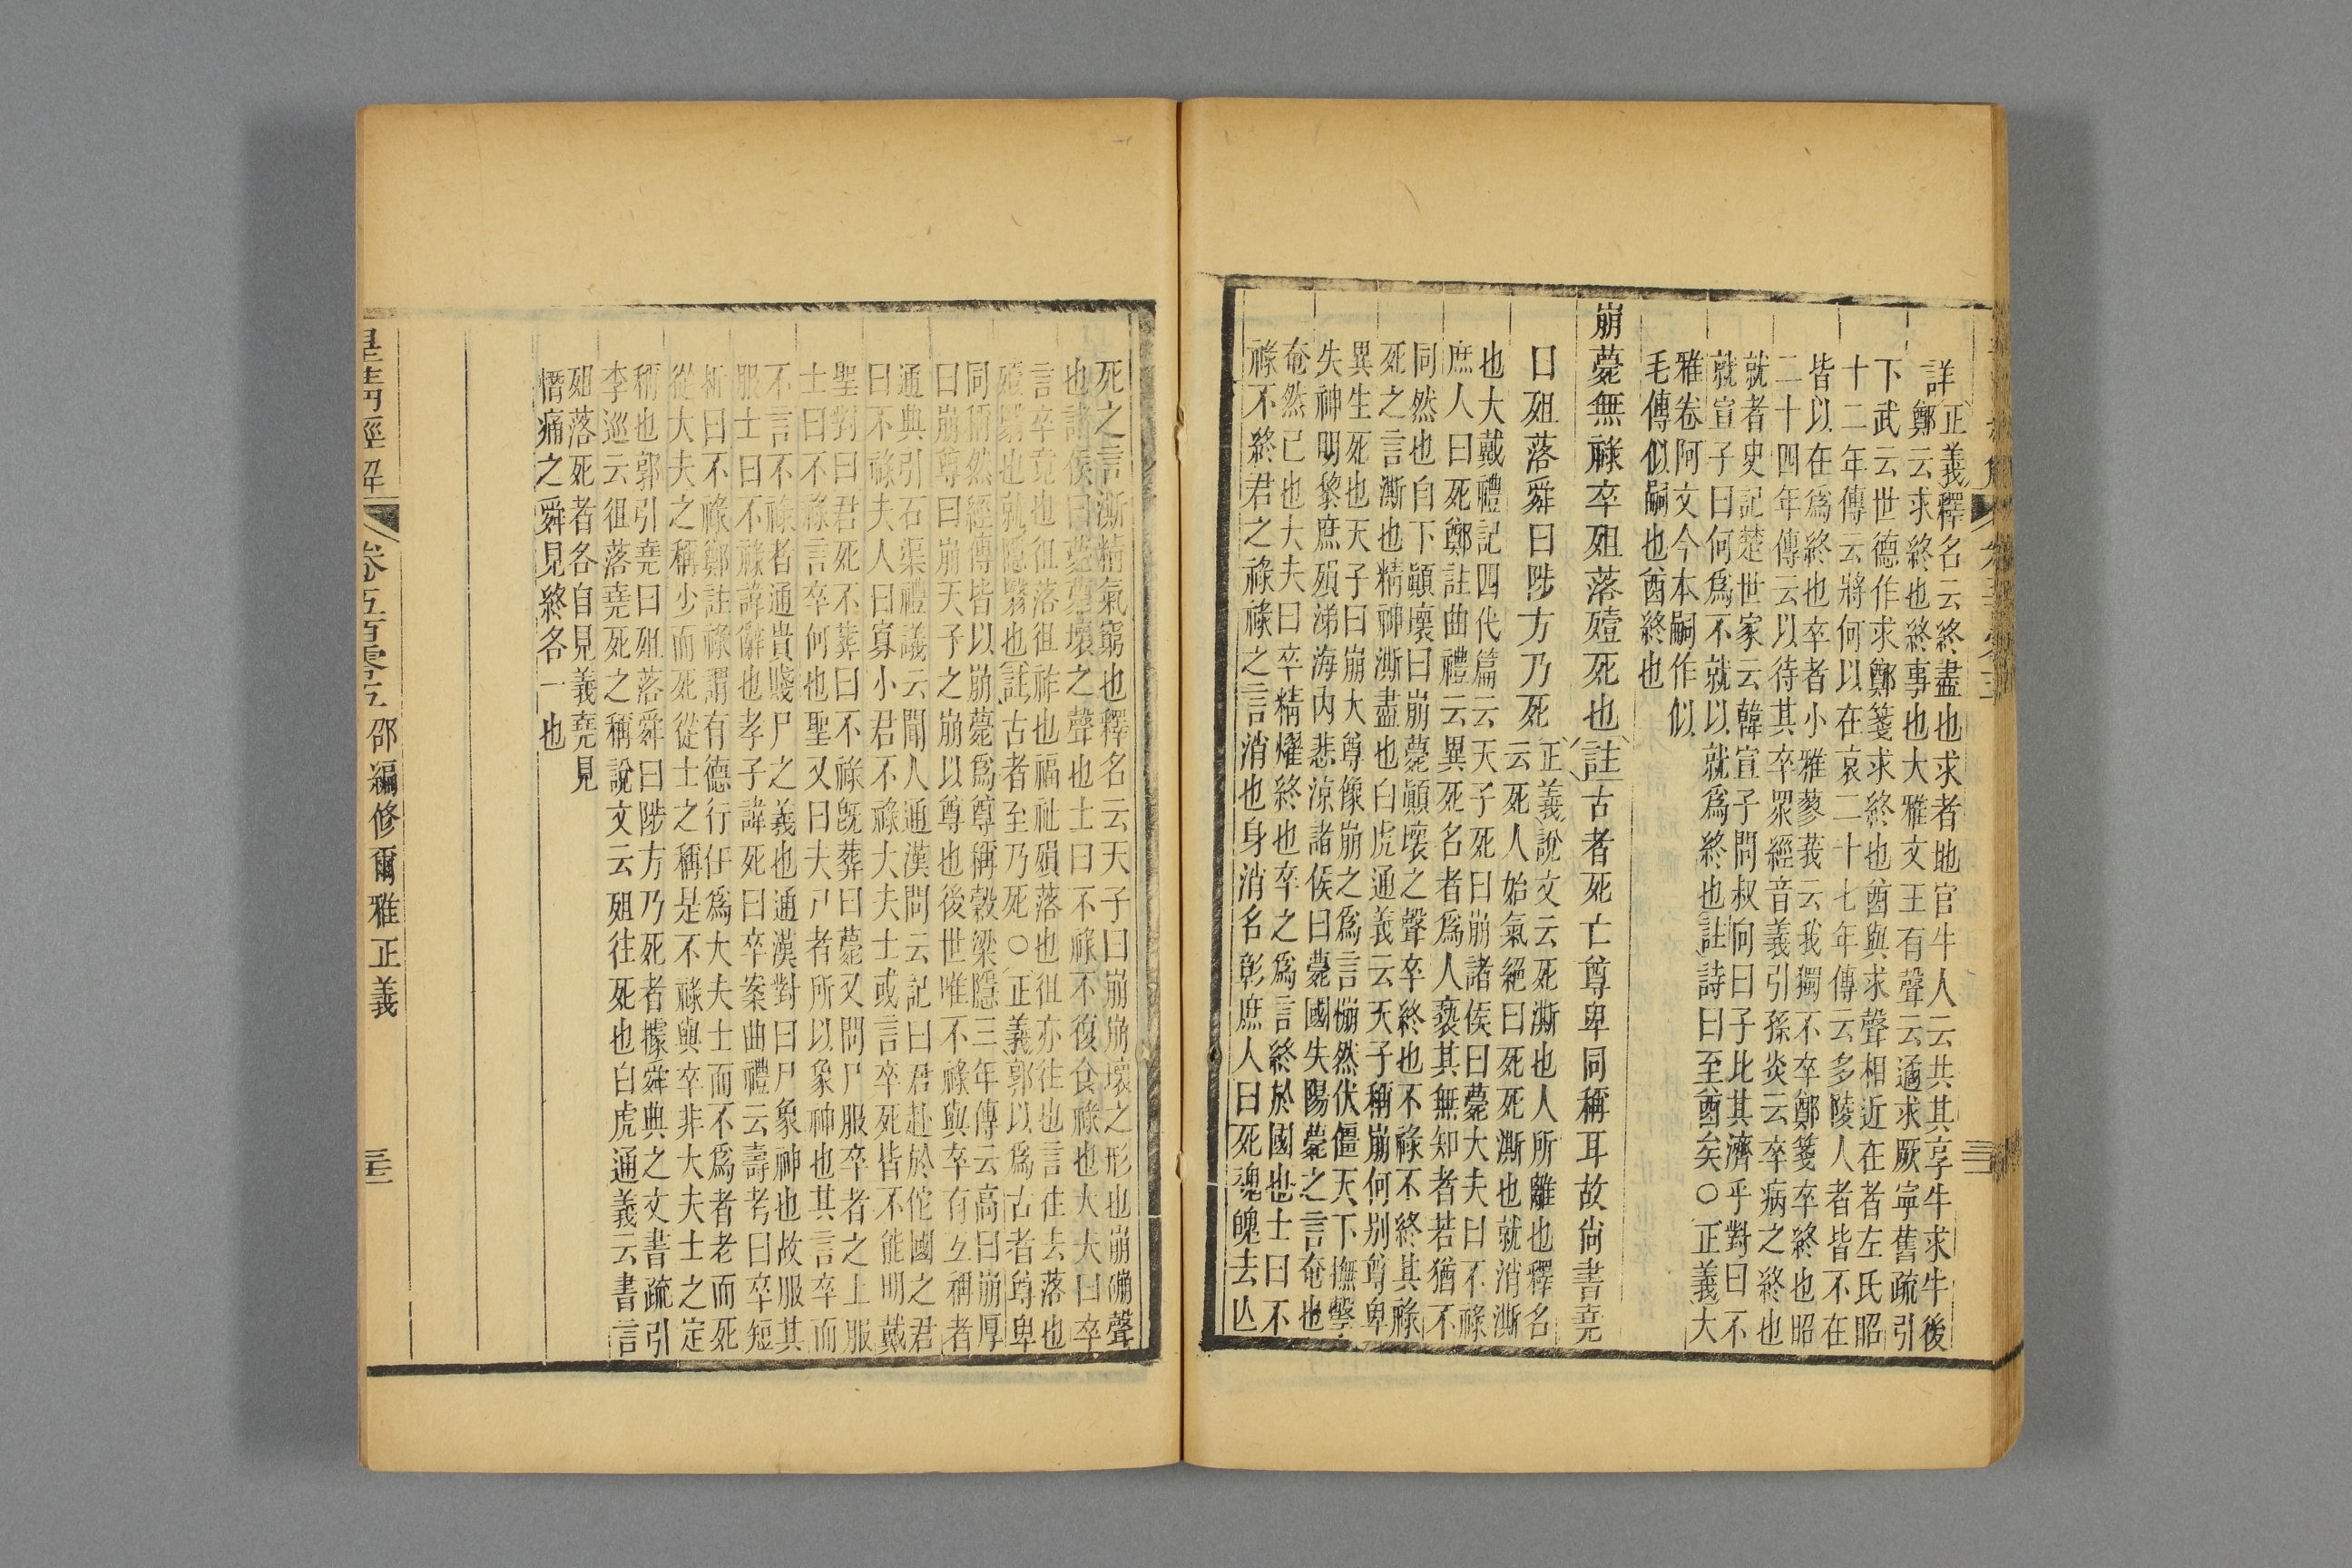 詳
正義釋名云終盡也求者地官牛人云共其享牛求牛後
鄭云求終也終事也大雅文王有聲云遹求厥寧舊疏引
下武云世德作求鄭箋求終也酋與求聲相近在者左氏昭
十二年傳云將何以在哀二十七年傳云多陵人者皆不在
皆以在爲終也卒者小雅蓼莪云我獨不卒鄭箋卒終也昭
二十四年傳云以待其卒眾經音義引孫炎云卒病之終也
就者史記楚世家云韓宣子問叔向曰子比其濟乎對曰不
就宣子曰何爲不就以就爲終也註詩曰至酋矣○正義大
雅卷阿文今本嗣作似
毛傳似嗣也酋終也
崩薨無祿卒殂落殪死也註古者死亡尊卑同稱耳故尚書堯
曰殂落舜曰陟方乃死
正義說文云死澌也人所離也釋名
云死人始氣絕曰死死澌也就消澌
也大戴禮記四代篇云天子死曰崩諸侯曰薨大夫曰不祿
庶人曰死鄭註曲禮云異死名者爲人褻其無知者若猶不
同然也自下顚壞曰崩薨顚壞之聲卒終也不祿不終其祿
死之言澌也精神澌盡也白虎通義云天子稱崩何別尊卑
異生死也天子曰崩大尊像崩之爲言㷯然伏僵天下撫擊
失神明黎庶殞涕海內悲涼諸侯曰薨國失陽薨之言奄也
奄然已也大夫曰卒精燿終也卒之爲言終於國也士曰不
祿不終君之祿祿之言消也身消名彰庶人曰死魂魄去亾
死之言澌精氣窮也釋名云天子曰崩崩壞之形也崩硼聲
也諸侯曰薨薨壞之聲也士曰不祿不復食祿也大夫曰卒
言卒竟也徂落徂祚也福祉殞落也徂亦往也言往去落也
殪翳也就隱翳也註古者至乃死○正義郭以爲古者尊卑
同稱然經傳皆以崩薨爲尊稱穀梁隱三年傳云高曰崩厚
曰崩尊曰崩天子之崩以尊也後世唯不祿與卒有互稱者
通典引石渠禮議云聞人通漢問云記曰君赴於佗國之君
曰不祿夫人曰寡小君不祿大夫士或言卒死皆不能明戴
聖對曰君死不葬曰不祿旣葬曰薨又問尸服卒者之上服
士曰不祿言卒何也聖又曰夫尸者所以象神也其言卒而
不言不祿者通貴賤尸之義也通漢對曰尸象神也故服其
服士曰不祿諱辭也孝子諱死曰卒案曲禮云壽考曰卒短
折曰不祿鄭註祿謂有德行任爲大夫士而不爲者老而死
從大夫之稱少而死從士之稱是不祿與卒非大夫士之定
稱也郭引堯曰殂落舜曰陟方乃死者據舜典之文書疏引
李巡云徂落堯死之稱說文云殂往死也白虎通義云書言
殂落死者各自見義堯見
憯痛之舜見終各一也
皇清經解
卷五百零五
邵編修爾雅正義
三